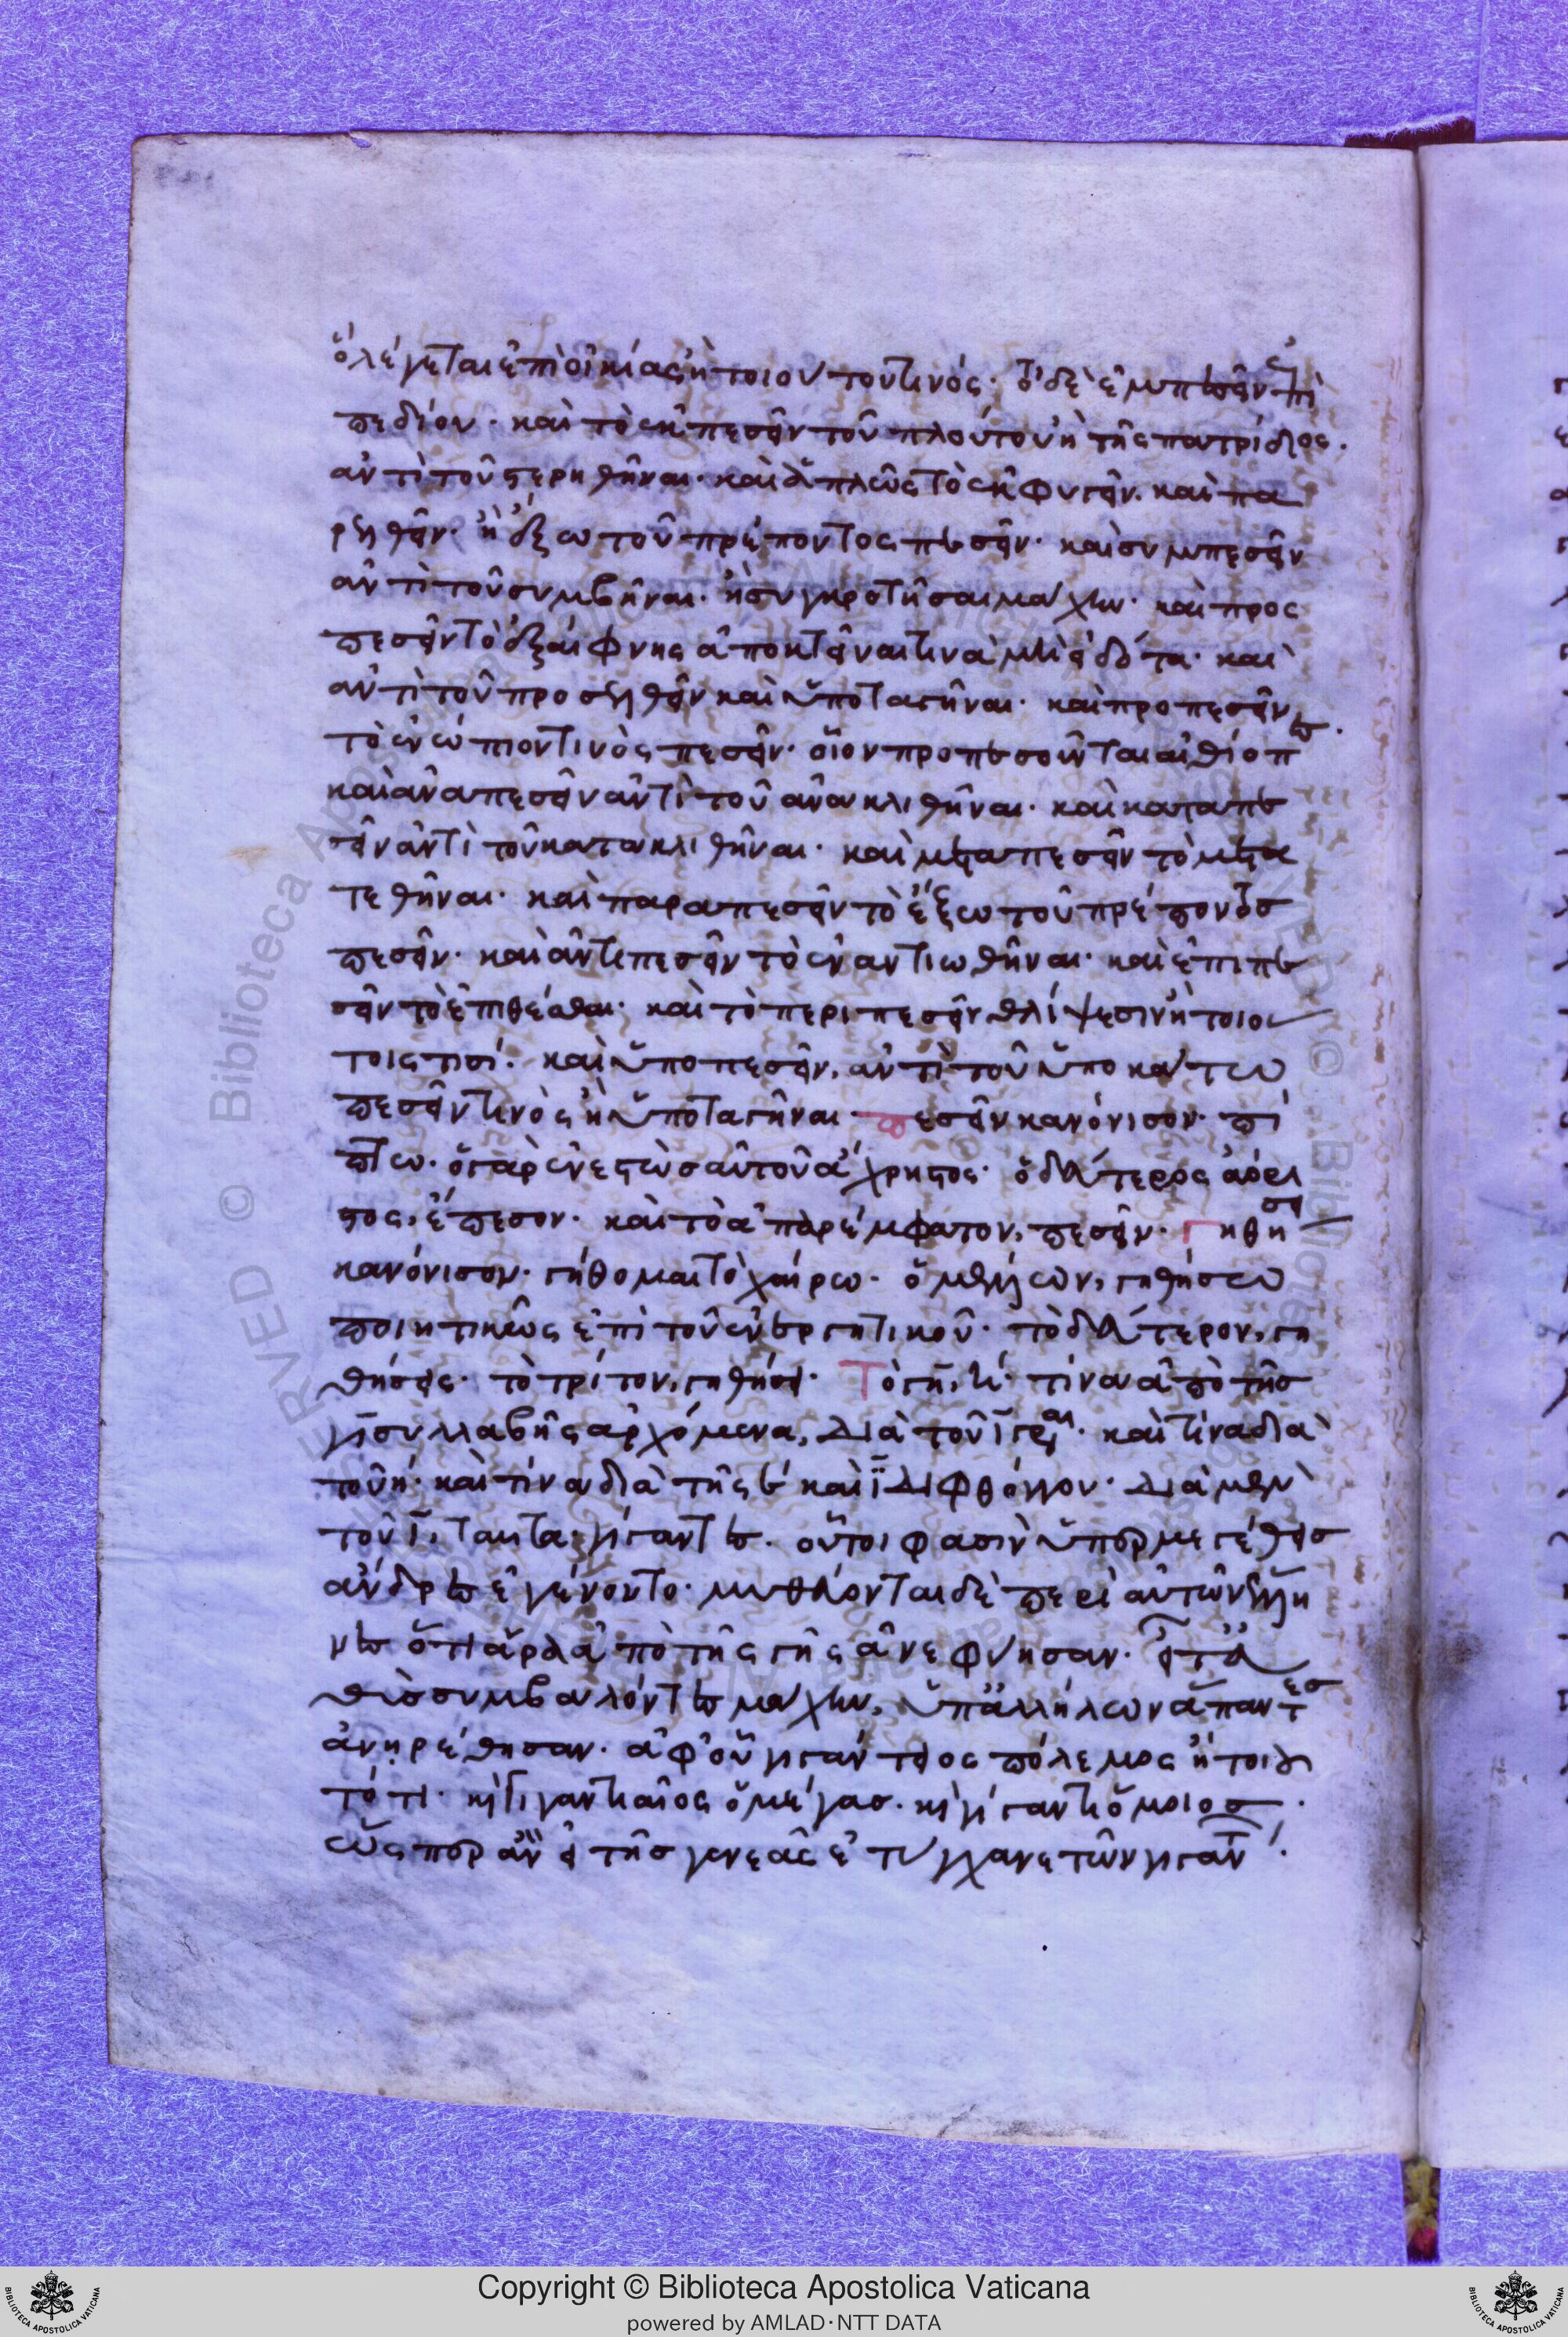 ὃ λέγεται ἐπὶ οἰκίας ἢ τοιούτου τινός· τὸ δὲ ἐμπεσεῖν ἐπὶ
πεδίον· καὶ τὸ ἐκπεσεῖν τοῦ πλούτου ἢ τῆς πατρίδος·
ἀντὶ τοῦ στερηθῆναι· καὶ ἁπλῶς τὸ ἐκφυγεῖν· καὶ πα
ρελθεῖν· ἢ ἔξω τοῦ πρέποντος πεσεῖν· καὶ συμπεσεῖν
ἀντὶ τοῦ συμβῆναι· ἢ συγκροτῆσαι μάχην· καὶ προσ
πεσεῖν τὸ ἐξαίφνης ἀποκτεῖναι τινὰ μὴ εἰδότα· καὶ
ἀντὶ τοῦ προσελθεῖν καὶ ὑποταγῆναι· καὶ προπεσεῖν
τὸ ἐνώπιον τινὸς πεσεῖν· οἷον προπεσοῦνται αἰθίοπες·
καὶ ἀναπεσεῖν ἀντὶ τοῦ ἀνακλιθῆναι· καὶ καταπε
σεῖν ἀντὶ τοῦ κατακλιθῆναι· καὶ μεταπεσεῖν τὸ μετα
τεθῆναι· καὶ παραπεσεῖν τὸ ἔξω τοῦ πρέποντος
πεσεῖν· καὶ ἀντιπεσεῖν τὸ ἐναντιωθῆναι· καὶ ἐπιπε
σεῖν τὸ ἐπιθέσθαι· καὶ τὸ περιπεσεῖν θλίψεσιν ἢ τοιού
τοις τισί· καὶ ὑποπεσεῖν, ἀντὶ τοῦ ὑποκάτω
πεσεῖν τινὸς ἢ ὑποταγῆναι· πεσεῖν κανόνισον· πί
πτω· ὁ γὰρ ἐνεστὼς αὐτοῦ ἄχρηστος· ὁ δεύτερος ἀόρι
στος, ἔπεσον· καὶ τὸ ἀπαρέμφατον, πεσεῖν· Γηθήσει
κανόνισον· γήθομαι τὸ χαίρω· ὁ μέλλων, γηθήσω
ποιητικῶς ἐπὶ τοῦ ἐνεργητικοῦ· τὸ δεύτερον, γη
θήσεις· τὸ τρίτον, γηθήσει· Τὸ γη, η· τίνα ἀπὸ τῆς
γι συλλαβῆς ἀρχόμενα, διὰ τοῦ ι γράφεται· καὶ τίνα διὰ
τοῦ η· καὶ τίνα διὰ τῆς ε καὶ ι διφθόγγου· διὰ μὲν
τοῦ ι, ταῦτα· γίγαντες· οὗτοι φασὶν ὑπερμεγέθεις
ἄνδρες ἐγένοντο· μυθεύονται δὲ περὶ αὐτῶν ἕλλη
νες ὅτι ἄρα ἀπὸ τῆς γῆς ἀνεφύησαν· εἶτα εὐ
θὺς συμβαλόντες μάχην, ὑπ' ἀλλήλων ἅπαντες
ἀνῃρέθησαν· ἀφ' οὗ γιγάντειος πόλεμος ἢ τοιοῦ
τό τι· καὶ γιγαντιαῖος ὁ μέγας· καὶ γίγαντι ὅμοιος·
ὥσπερ ἂν εἰ τῆς γενεᾶς ἐτύγχανε τῶν γιγάντων·
Copyright © Biblioteca Apostolica Vaticana
powered by AMLAD·NTT DATA